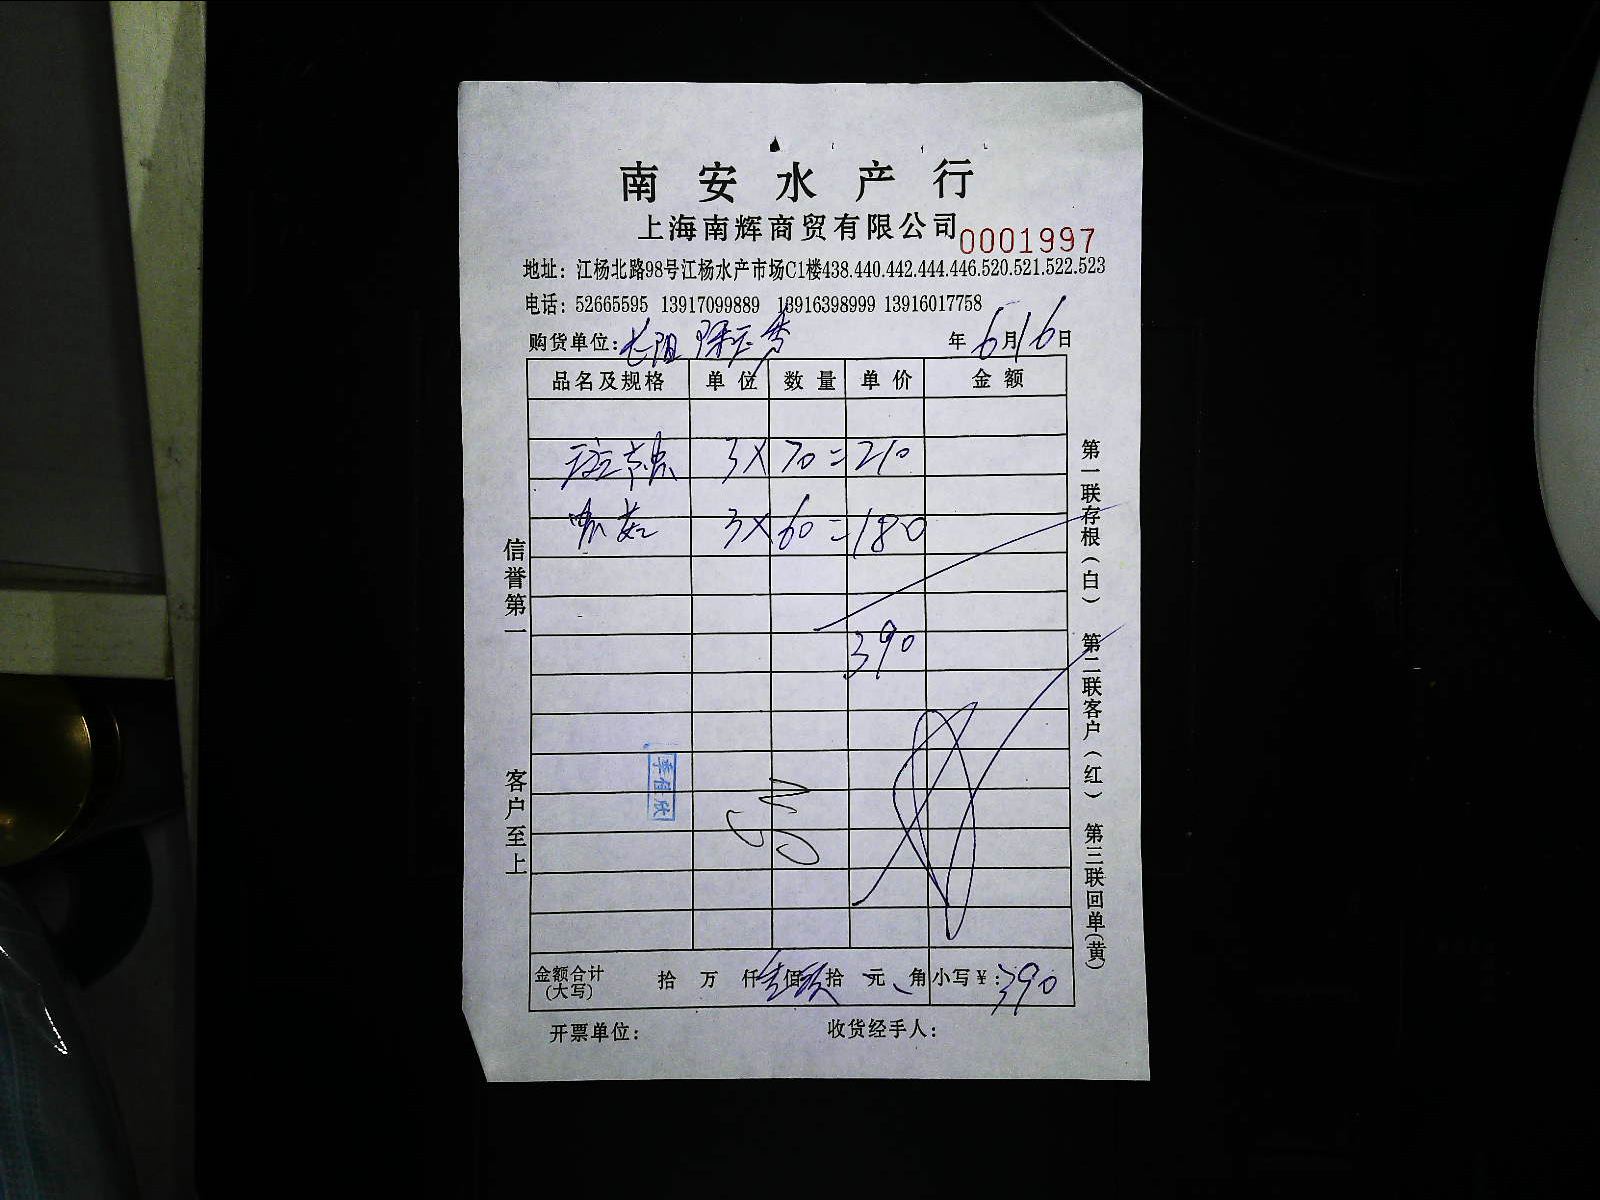 南安水产行
上海南辉商贸有限公司 0001997
地址：江杨北路98号江杨水产市场C1楼438.440.442.444.446.520.521.522.523
电话：52665595 13917099889 13916398999 13916017758
购货单位：长阳 年6月16日
品名及规格 单位 数量 单价 金额
3×70=210
3×60=180
390
信誉第一
客户至上
第一联存根（白） 第二联客户（红） 第三联回单（黄）
金额合计（大写） 拾 万 仟 佰 拾 元 角 小写￥：390
开票单位： 收货经手人：